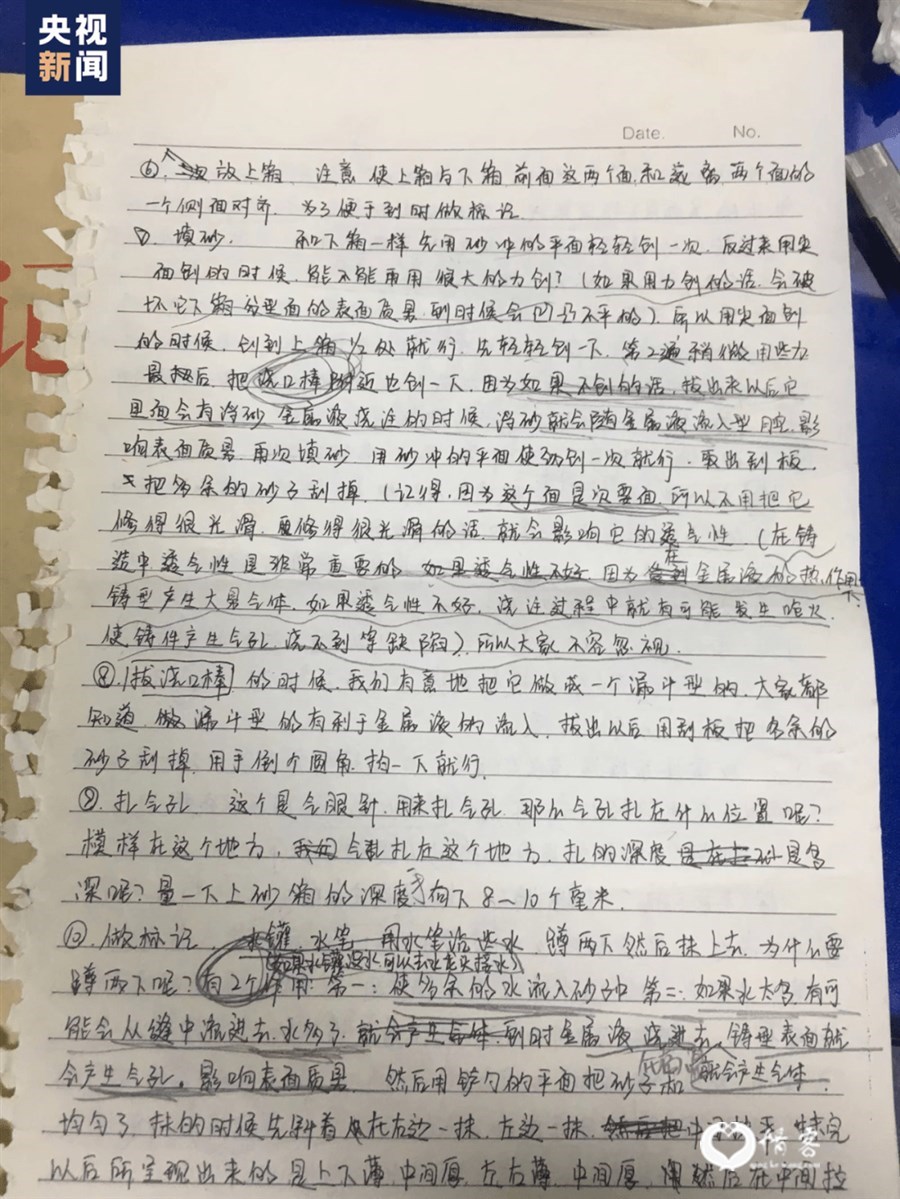 央视
新闻
Date. No.
⑥. 放上箱. 注意 使上箱与下箱 前面这两个面和 两个面的
一个侧面对齐. 为了便于到时做标识.
⑦. 填砂. 和下箱一样 先用砂冲的平面轻轻创一次. 反过来用尖
面创的时候, 能不能再用很大的力创? (如果用力创的话. 会破
坏它下箱分型面的表面质量. 到时候会凹凸不平的). 所以用尖面创
的时候. 创到上箱1/2处就行. 先轻轻创一下, 第2遍稍微用些力
最后, 把浇口棒附近也创一下. 因为如果不创的话, 拔出来以后它
里面会有浮砂 金属液浇注的时候, 浮砂就会随金属液流入型腔. 影
响表面质量. 再次填砂. 用砂冲的平面使劲创一次就行. 取出刮板.
把多余的砂子刮掉. (记得, 因为这个面是次要面. 所以不用把它
修得很光滑. 修得很光滑的话. 就会影响它的透气性. (在铸
造中透气性是非常重要的 如果透气性不好. 因为在金属液的热作用下
铸型产生大量气体. 如果透气性不好, 浇注过程中就有可能发生呛火.
使铸件产生气孔. 浇不到等缺陷). 所以大家不容忽视.
⑧. 拔浇口棒 的时候. 我们有意地把它做成一个漏斗型的. 大家都
知道. 做漏斗型的有利于金属液的流入. 拔出以后 用刮板把多余的
砂子刮掉. 用手倒个圆角. 一下就行.
⑨. 扎气孔. 这个是气眼针. 用来扎气孔. 那么气孔扎在什么位置呢?
模样在这个地方, 气孔扎在这个地方. 扎的深度 是多
深呢? 量一下上砂箱的深度 向下8～10个毫米.
⑩. 做标记. 水罐. 水笔. 用水笔沾些水. 蹲两下然后抹上去. 为什么要
(如果水罐没水可以去水龙头接水)
蹲两下呢? 有2个作用: 第一: 使多余的水流入砂子中 第二: 如果水太多 有可
能会从缝中流进去. 水多了. 就会产生气体. 到时金属液浇进去. 铸型表面就
会产生气孔. 影响表面质量. 然后用铲勺的平面把砂子 就会产生气体.
均匀了, 抹的时候先斜着 在右边一抹. 左边一抹. 然后把中间
以后所呈现出来的是上下薄, 中间厚. 左右薄. 中间厚. 然后在中间